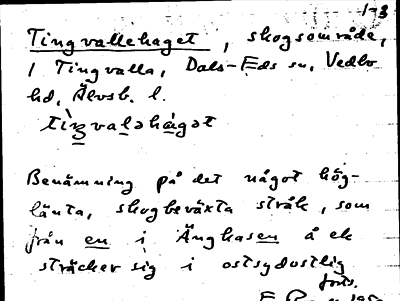 1-3
Tingvallehaget, skogsområde,
1 Tingvalla, Dals-Eds sn, Vedbo
hd, Älvsb. l.
tìŋvaləhàgət
Benämning på det något hög-
länta, skogbeväxta stråk, som
från en i Änghasen å ek
sträcker sig i ostsydostlig
forts.